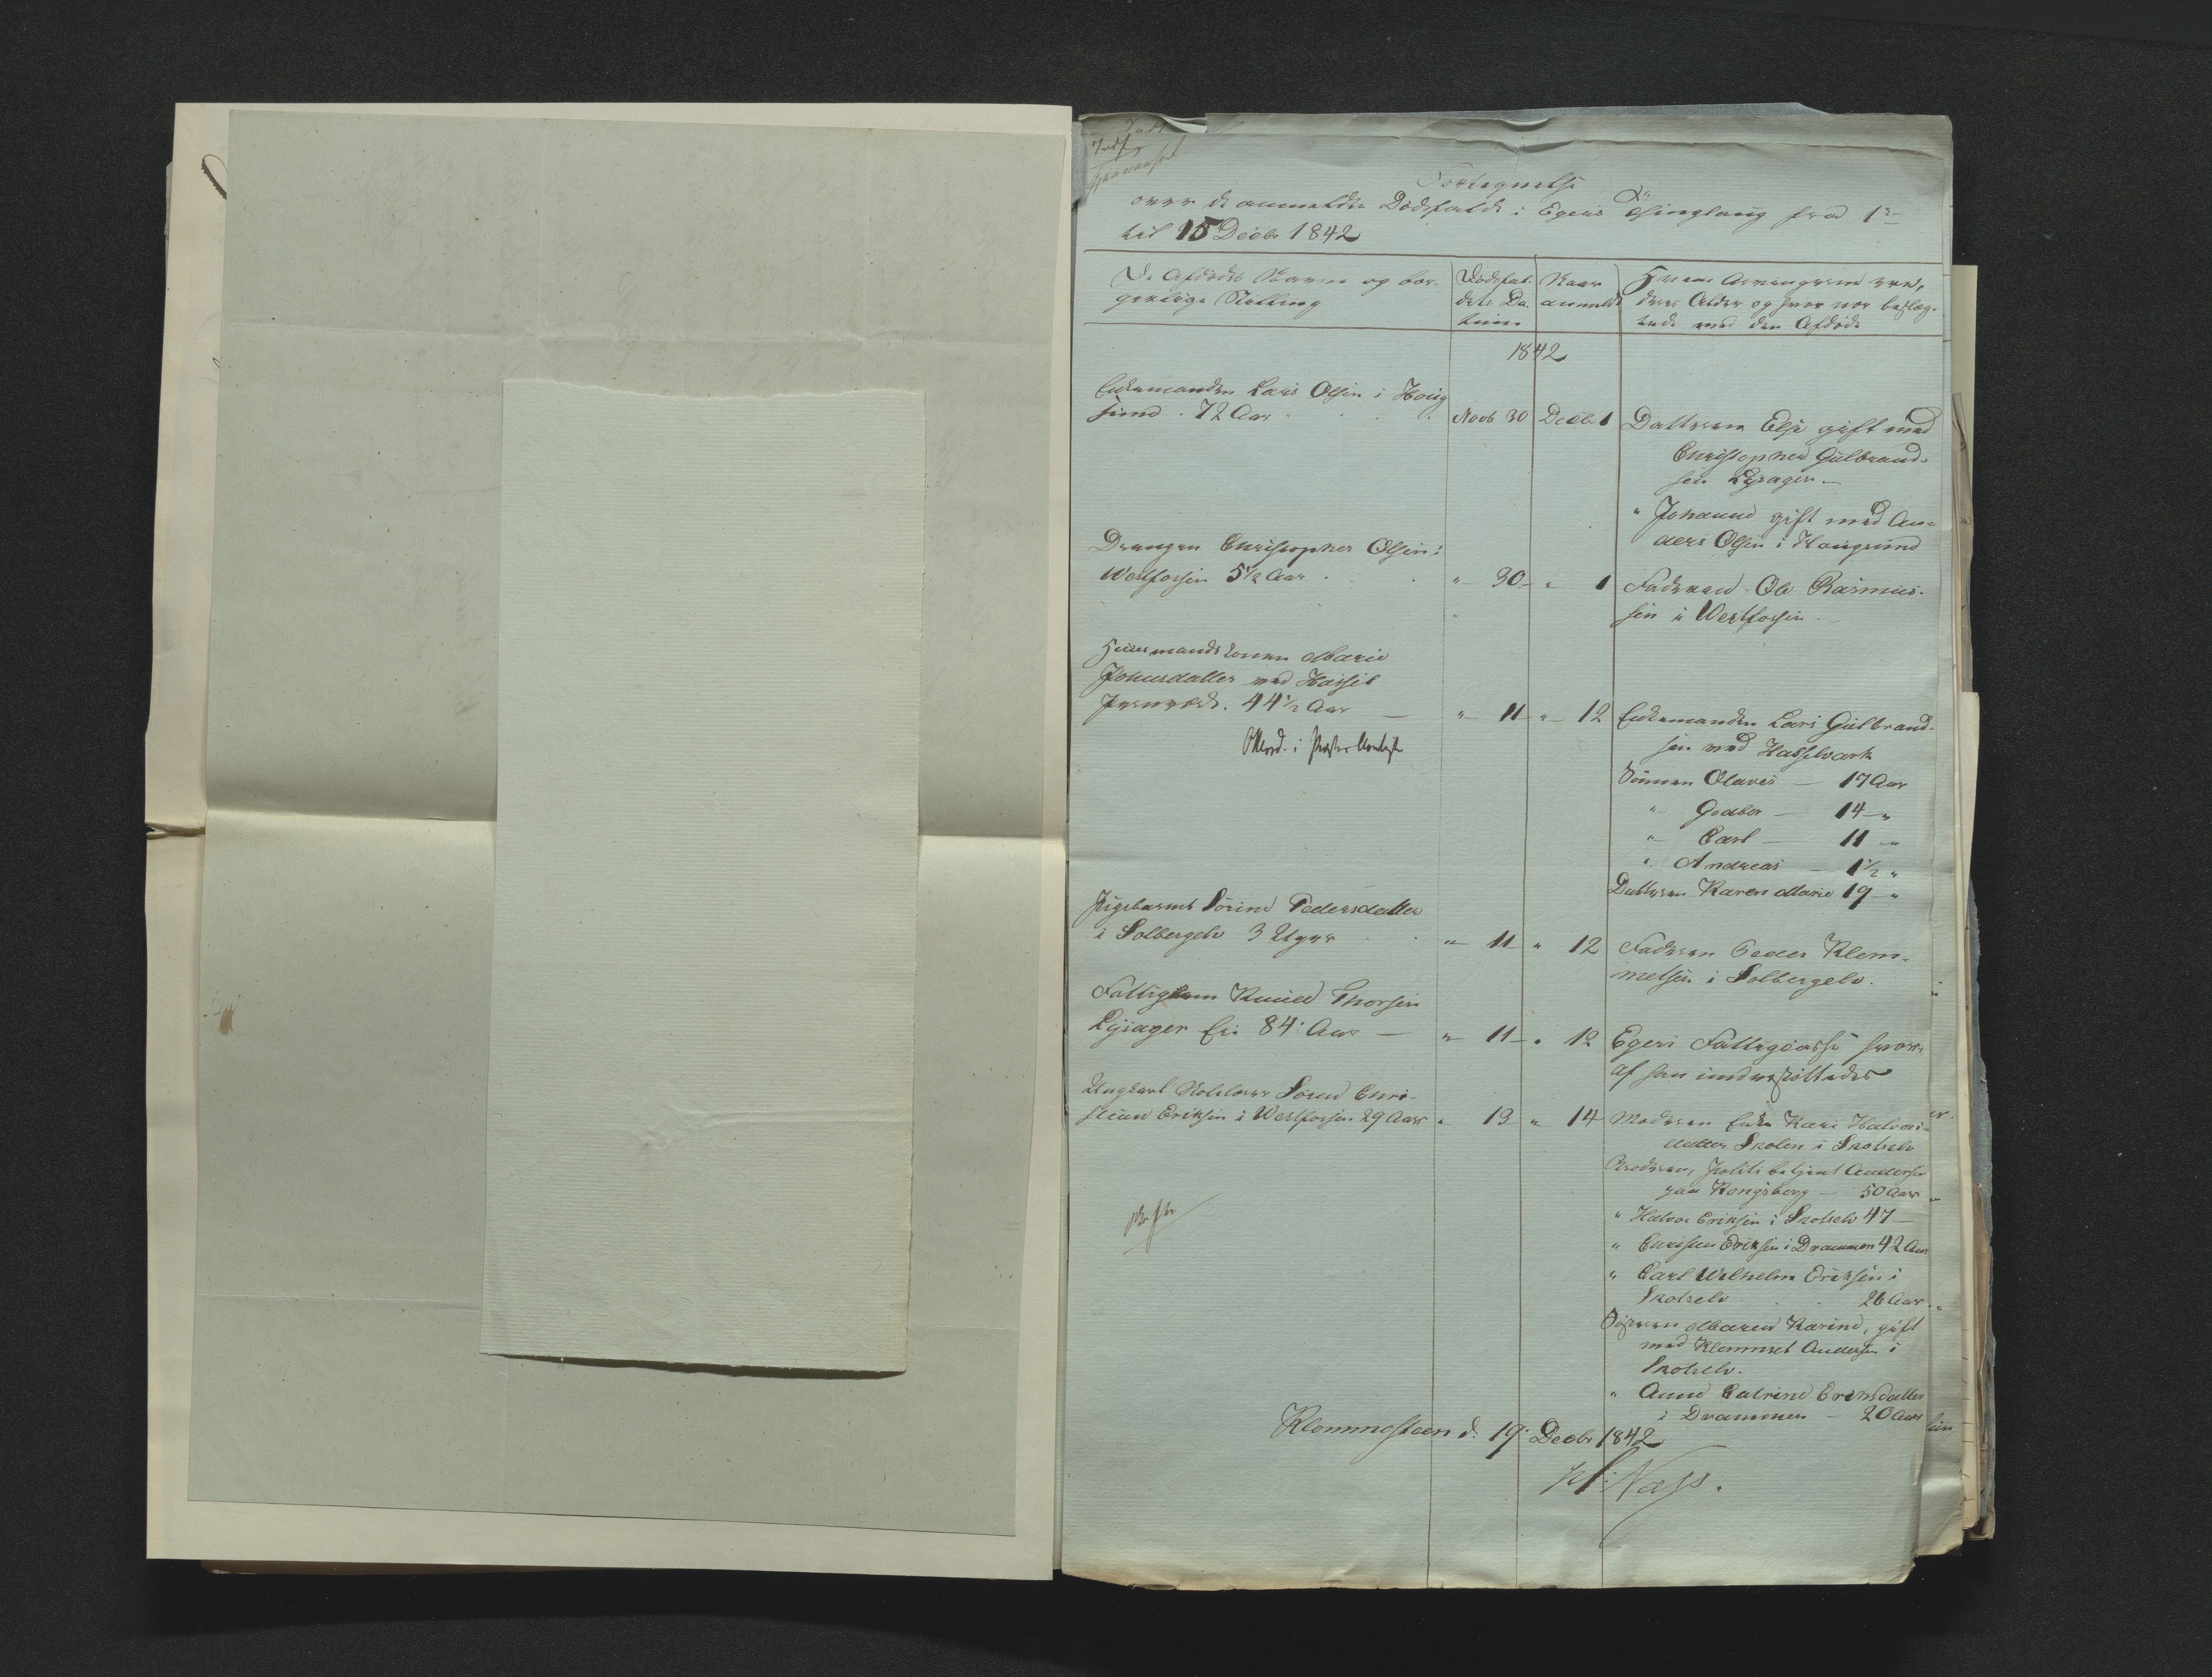 Indf
Fortegnelse
over de anmeldte Dødsfalde i Egers Thinglaug fra 1ste
til 15 Decbr 1842
De Afdødes Navne og bor-
gerlige Stilling
Dødsfal-
dets Da-
tum
Naar
anmeldt
Hvem Arvingerne ere,
deres Alder og hvor nær beslæg-
tede med den Afdøde
1842
Enkemanden Lars Olsen i Houg
sund . 72 Aar
Novb 30
Decbr 1
Datteren Else gift med
Christopher Gulbrand-
sen Lysager
" Johanne gift med An-
ders Olsen i Hougsund
Drengen Christopher Olsen i
Westfossen 5 1/2 Aar .
" 30
" 1
Faderen Ole Rasmus-
sen i Westfossen
Huusmandskonen Marie
Johnsdatter ved Hassel
Jernværk. 44 1/2 Aar
" 11
" 12
Enkemanden Lars Gulbrand-
sen ved Hasselværk
Sønnen Olaves – 17 Aar
" Godbor – 14 "
" Carl – 11 "
" Andreas – 1 1/2 "
Datteren Karen Marie 19 "
Pigebarnet Sørine Pedersdatter
i Solbergelv 3 Uger
" 11
" 12
Faderen Peder Klem-
metsen i Solbergelv.
Fattiglem Knud Thorsen
Lysager Ei: 84 Aar
" 11
" 12
Egers Fattigcasse hvor-
af han understøttedes
Ungkarl Skolelærer Søren Chri-
stian Eriksen i Westfossen 29 Aar
" 13
" 14
Moderen Enke Kari Halvors-
datter Skolen i Skotselv
Broderen, Politibetjent Andersen
paa Kongsberg – 50 Aar
" Halvor Eriksen i Skotselv 47
" Christian Eriksen i Drammen 42 Aar
" Carl Wilhelm Eriksen i
Skotselv 26 Aar
Søsteren Maren Karine, gift
med Klemmet Andersen i
Skotselv.
" Anne Catrine Eriksdatter
i Drammen – 20 Aar
Klommesteen d. 19 Decbr 1842
Næss.